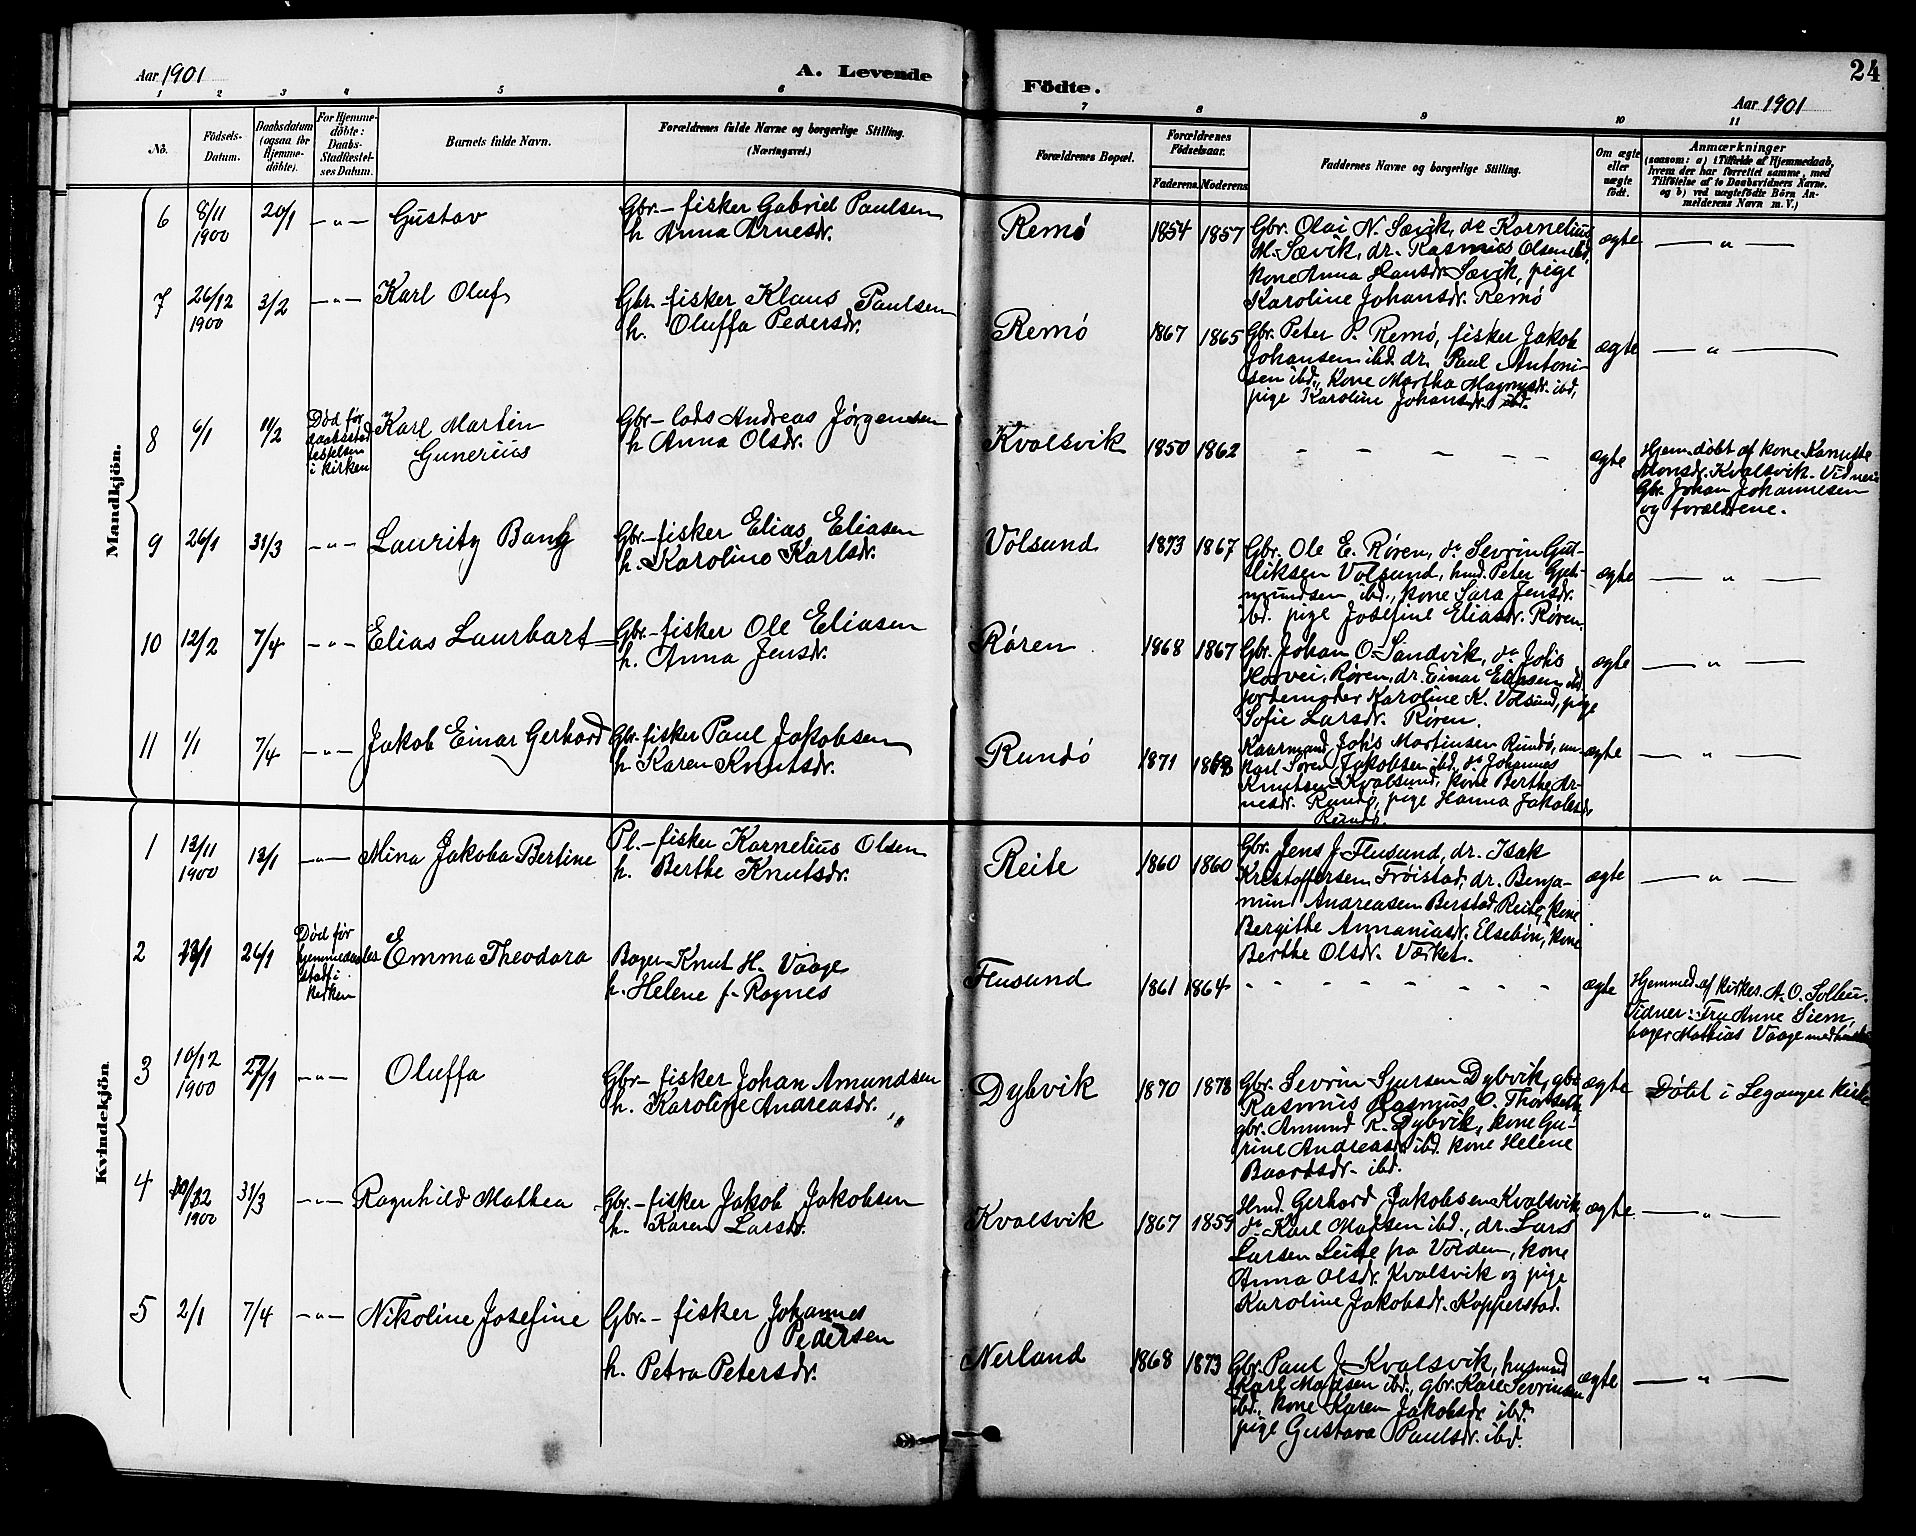 Aar 1901
A. Levende
Födte.
24
Aar 1901
1 2 3 4 5 6 7 8 9 10 11
No.
Födsels-
Datum.
Daabsdatum
(ogsaa for
Hjemme-
döbte).
For Hjemme-
döbte:
Daabs-
Stadfestel-
ses Datum.
Barnets fulde Navn.
Forældrenes fulde Navne og borgerlige Stilling.
(Næringsvei.)
Forældrenes Bopæl.
Forældrenes
Födselsaar.
Faderens. Moderens.
Faddernes Navne og borgerlige Stilling.
Om ægte
eller
uægte
födt.
Anmærkninger
(saasom: a) i Tilfælde af Hjemmedaab,
hvem der har forrettet samme, med
Tilföielse af to Daabsvidners Navne,
og b) ved uægtefödte Börn An-
melderens Navn m. V.)
Mandkjön.
6 8/11 1900 20/1 —„— Gustav
Gbr.- fisker Gabriel Paulsen
h. Anna Arnesdr.
Remø 1854 1857
Gbr. Olai N. Sævik, do Kornelius
M. Sævik, dr. Rasmus Olsen ibd,
kone Anna Hansdr. Sævik, pige
Karoline Johansdr. Remø
ægte — „ —
7 26/12 1900 3/2 —„— Karl Oluf
Gbr.- fisker Klaus Paulsen
h. Oluffa Pedersdr.
Remø 1867 1865
Gbr. Peter P. Remø, fisker Jakob
Johansen ibd. dr. Paul Antoni-
sen ibd., kone Martha Magnusdr. ibd,
pige Karoline Johansdr. ibd.
ægte — „ —
8 6/1 11/2
Død før
i kirken
Karl Martin
Gunerius
Gbr.- lods Andreas Jørgensen
h. Anna Olsdr.
Kvalsvik 1850 1862 - - - - - -
ægte
Hjemdøbt af kone
Monsdr. Kvalsvik. Vidner:
Gbr. Johan Johannesen
og forældrene.
9 26/1 31/3 —„— Lauritz Bang
Gbr.- fisker Elias Eliasen
h. Karoline Karlsdr.
Volsund 1873 1867
Gbr. Ole E. Røren, do Sevrin
Volsund, hmd. Peter
ibd., kone Sara Jensdr.
ibd. pige Josefine Eliasdr. Røren.
ægte — „ —
10 12/2 7/4 —„— Elias Laurbart
Gbr.- fisker Ole Eliasen
h. Anna Jensdr.
Røren 1868 1867
Gbr. Johan O. Sandvik, do Johs
Røren, dr. Einar Eliasen ibd
jordemoder Karoline K. Volsund, pige
Sofie Larsdr. Røren.
ægte — „ —
11 1/1 7/4 —„— Jakob Einar Gerhard
Gbr. fisker Paul Jakobsen
h. Karen Knutsdr.
Rundø 1871
Kaarmand Johs Martinsen Rundø, un-
karl Søren Jakobsen ibd., do Johannes
Knutsen Kvalsund, kone Berthe Ar-
nesdr. Rundø, pige Hanna Jakobsdr
Rundø.
ægte — „ —
Kvindekjön
1 12/11 1900 13/1 —„— Mina Jakoba Bertine
Pl.- fisker Kornelius Olsen
h. Berthe Knutsdr.
Reite 1860 1860
Gbr. Jens J. Flusund, dr. Isak
Kristoffersen Frøistad, dr. Benja-
min Andreasen Berstad Reite, kone
Bergithe Annaniasdr. Elsebøn, kone
Berthe Olsdr. Værket.
ægte — „ —
2 26/1
Død før
stadf. i
kirken
Emma Theodora
Bager Knut H. Vaage
h. Helene f. Ragnes
Flusund 1861 1864 - - - - - - - -
ægte
Hjemmed. af kirkes. A. O. Solbu.
Vidner: Fru Anne Siem,
bager Mathias Vaage
3 10/12 1900 —„— Oluffa
Gbr.- fisker Johan Amundsen
h. Karoline Andreasdr. „
Dybvik 1870 1878
Gbr. Sevrin Sjursen Dybvik, gbr
Rasmus Rasmus O.
gbr. Amund R. Dybvik, kone Gu-
rine Andreasdr ibd. kone Helene
Baardsdr. ibd.
ægte Døbt i Leganger kirke
4 1900 31/3 —„— Ragnhild Mathea
Gbr.- fisker Jakob Jakobsen
h. Karen Larsdr.
Kvalsvik 1867 1859
Hmd. Gerhard Jakobsen Kvalsvik,
do Karl Madsen ibd., dr. Lars
Larsen Leite pa Volden, kone
Anna Olsdr. Kvalsvik og pige
Karoline Jakobsdr. Kopperstad.
ægte. — „ —
5 2/1 7/4 —„— Nikoline Josefine
Gbr.- fisker Johannes
Pedersen
h. Petra Petersdr.
Nerland 1868 1873
Gbr. Paul J. Kvalsvik, husmand
Karl Madsen ibd., gbr. Kare Sevrinsen
ibd., kone Karen Jakobsdr ibd.
pige Gustava Paulsdr. ibd.
ægte — „ —